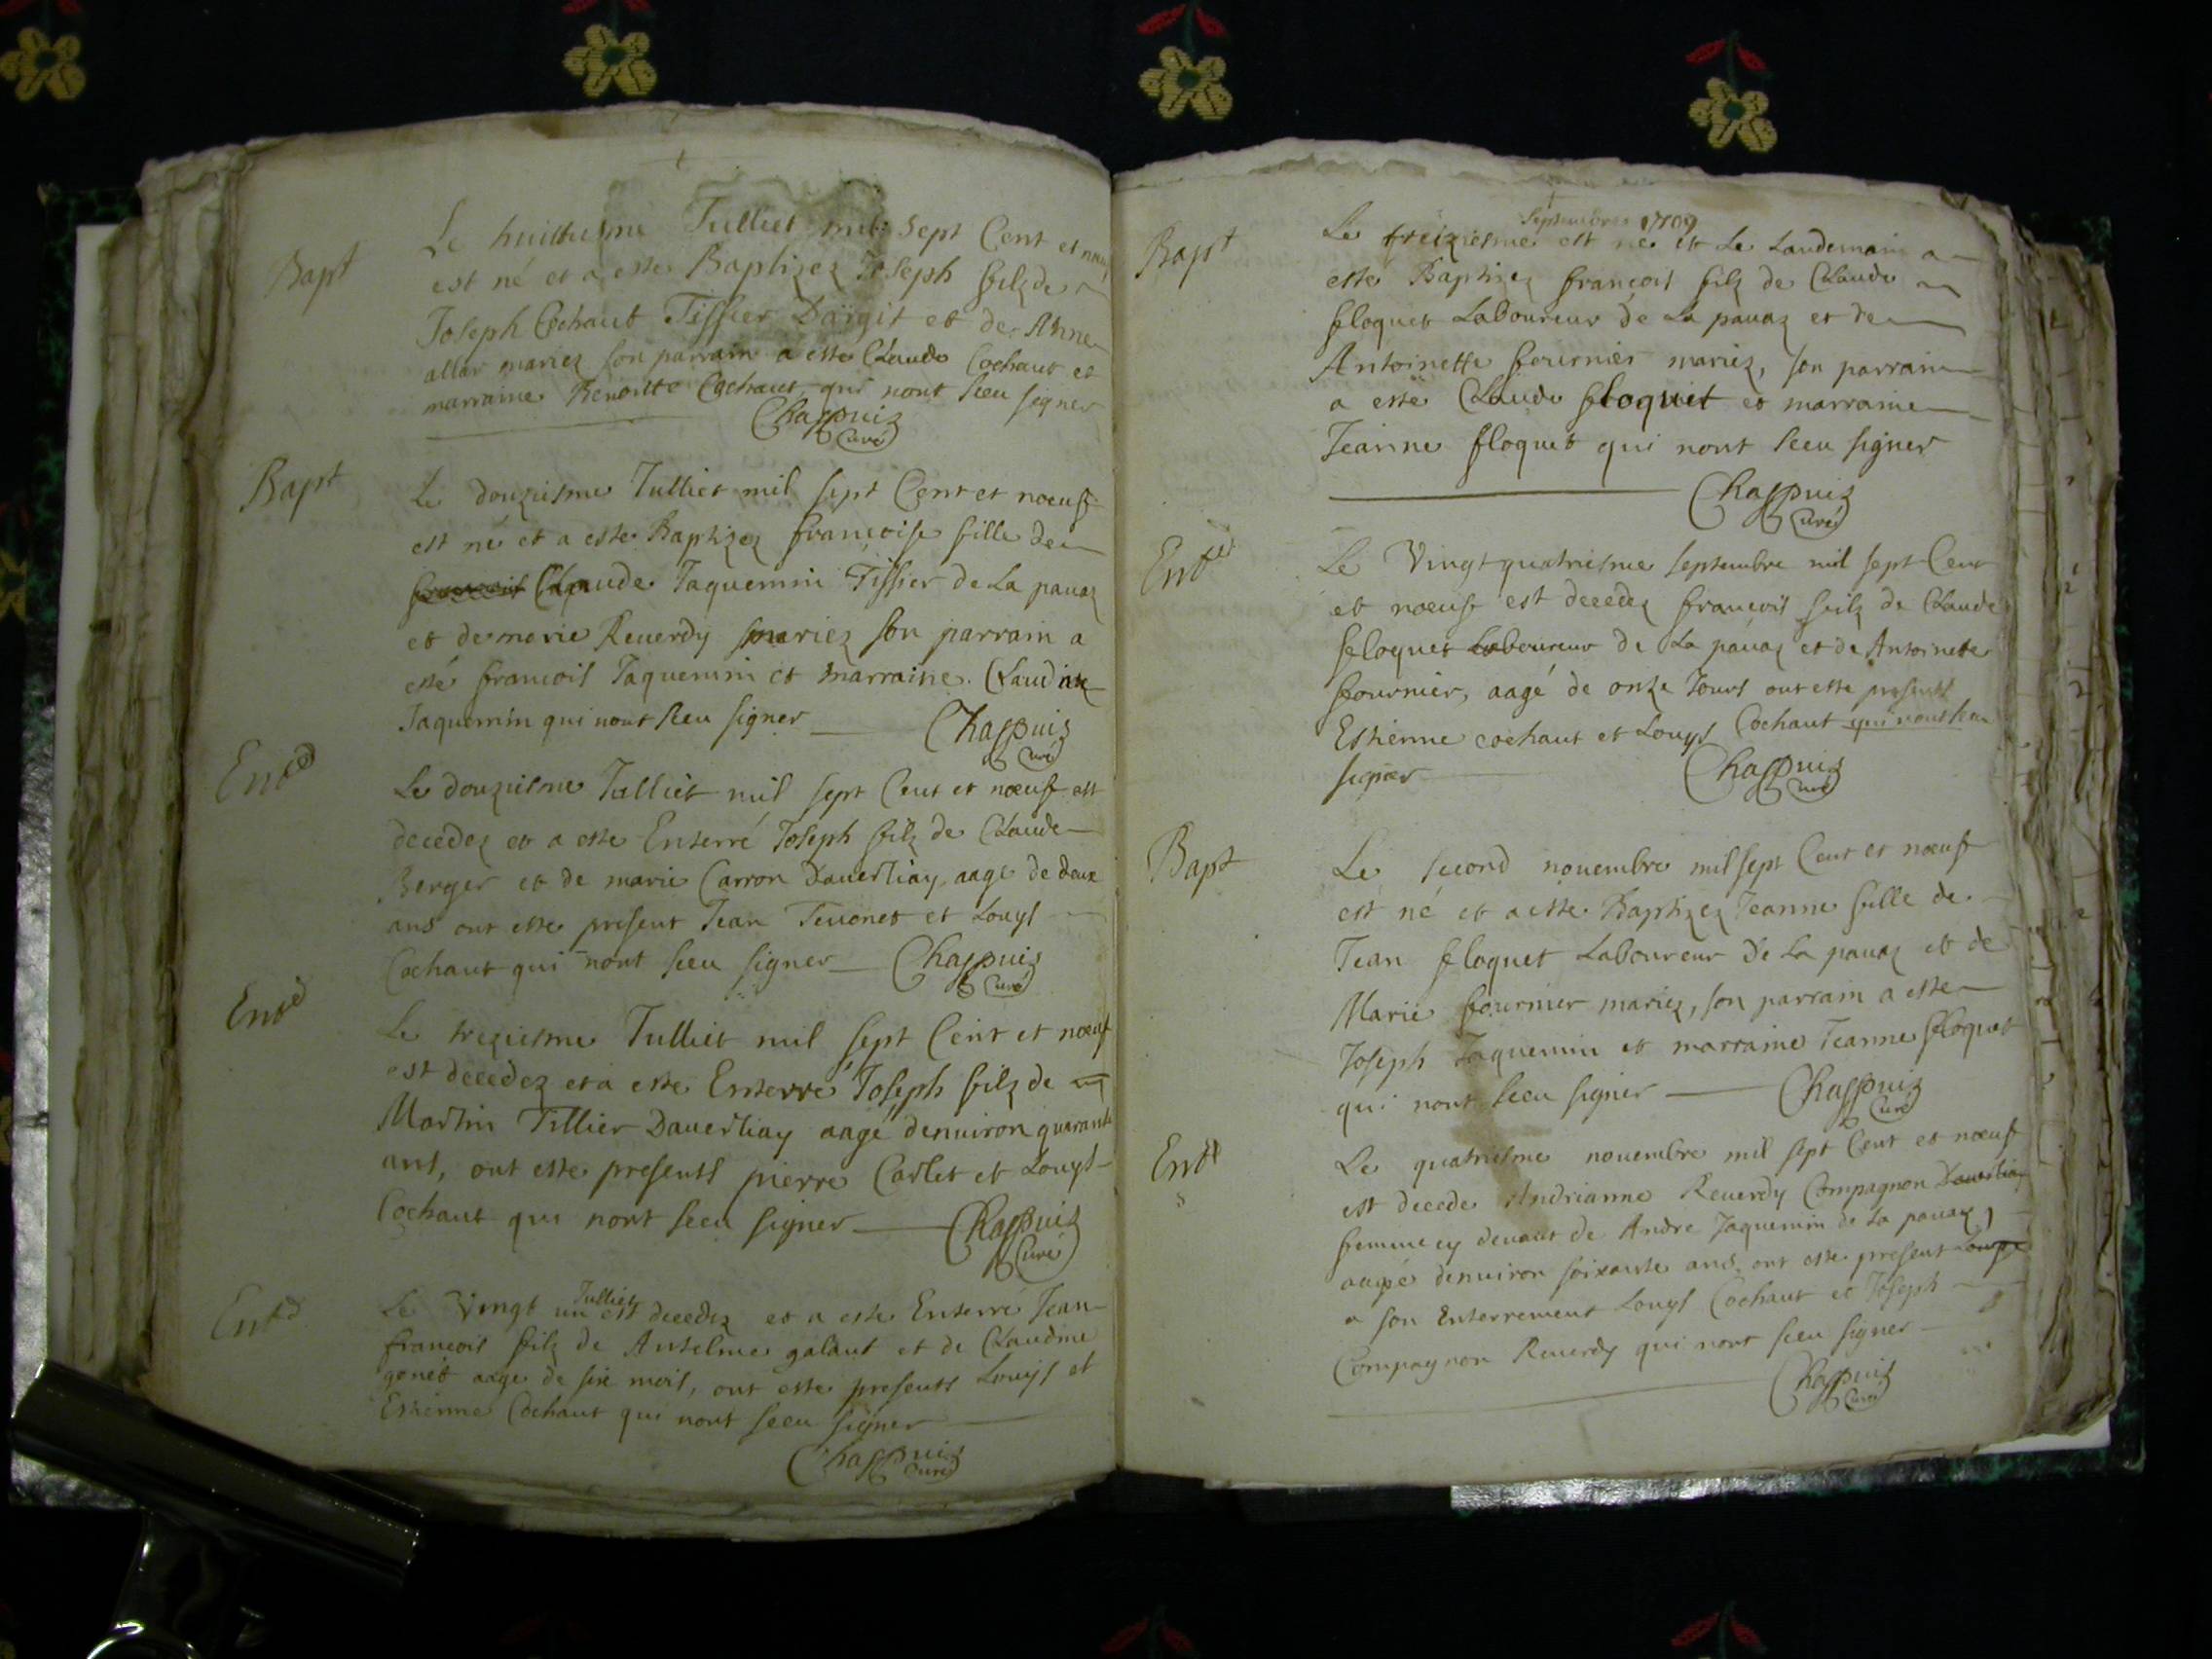 Bapt
Le huittiesme Julliet mil sept Cent et
est né et a este Baptizez Joseph filz de
Joseph Cochaut Tissier Dargit et de Anne
allar mariez son parrain a este Claude Cochaut et
marraine Benoitte Cochaut qui nont sceu signer
Chappuiz
Curé
Bapt
Le douziesme Julliet mil sept Cent et noeuf
est né et a este Baptizez francoise fille de
Claude Jaquemin Tissier de La pauaz
et de marie Reuerdy mariez son parrain a
esté francois Jaquemin et marraine Claudine
Jaquemin qui nont sceu signer Chappuiz
Curé
Entd
Le douziesme Julliet mil sept Cent et noeuf est
decedez et a este Enterré Joseph filz de Claude
Berger et de marie Carron Daverliay aage de deux
ans ont este present Jean Teuonet et Louys
Cochaut qui nont sceu signer Chappuiz
Curé
Entd
Le treziesme Julliet mil sept Cent et noeuf
est decedez et a este Enterré Joseph filz de
Martin Tillier Daverliay aagé denuiron quarante
ans, ont este presents pierre Carlet et Louys
Cochaut qui nont sceu signer Chappuiz
Curé
Entd
Julliet
Le Vingt un est decedez et a este Enterré Jean
francois filz de Anselme galaut et de Claudine
gonet aage de six mois, ont este presents Louys et
Estienne Cochaut qui nont sceu signer
Chappuiz
Curé
Bapt
Septembre 1709
Le treiziesme est né et Le Landemain a
este Baptizez francois filz de Claude
floquet Laboureur de La pauaz et de
Antoinette fournier mariez, son parrain
a esté Claude floquet et marraine
Jeanne floquet qui nont sceu signer
Chappuiz
Curé
Entd
Le Vingt quatriesme septembre mil sept Cent
et noeuf est decedez francois filz de Claude
floquet Laboureur de La pauaz et de Antoinette
fournier, aagé de onze Jours ont este presents
Estienne cochaut et Louys Cochaut qui nont sceu
signer Chappuiz
Curé
Bapt
Le second nouembre mil sept Cent et noeuf
est né et a este Baptizez Jeanne fille de
Jean floquet Laboureur De La pauaz et de
Marie fournier mariez, son parrain a este
Joseph Jaquemin et marraine Jeanne floquet
qui nont sceu signer Chappuiz
Curé
Entd
Le quatriesme nouembre mil sept Cent et noeuf
est decede Andrianne Reuerdy Compagnon Daverliay
femme cy deuant de Andre Jaquemin de La pauaz,
aagée denuiron soixante ans, ont este present
a son Enterrement Louys Cochaut et Joseph
Compagnon Reuerdy qui nont sceu signer
Chappuiz
Curé